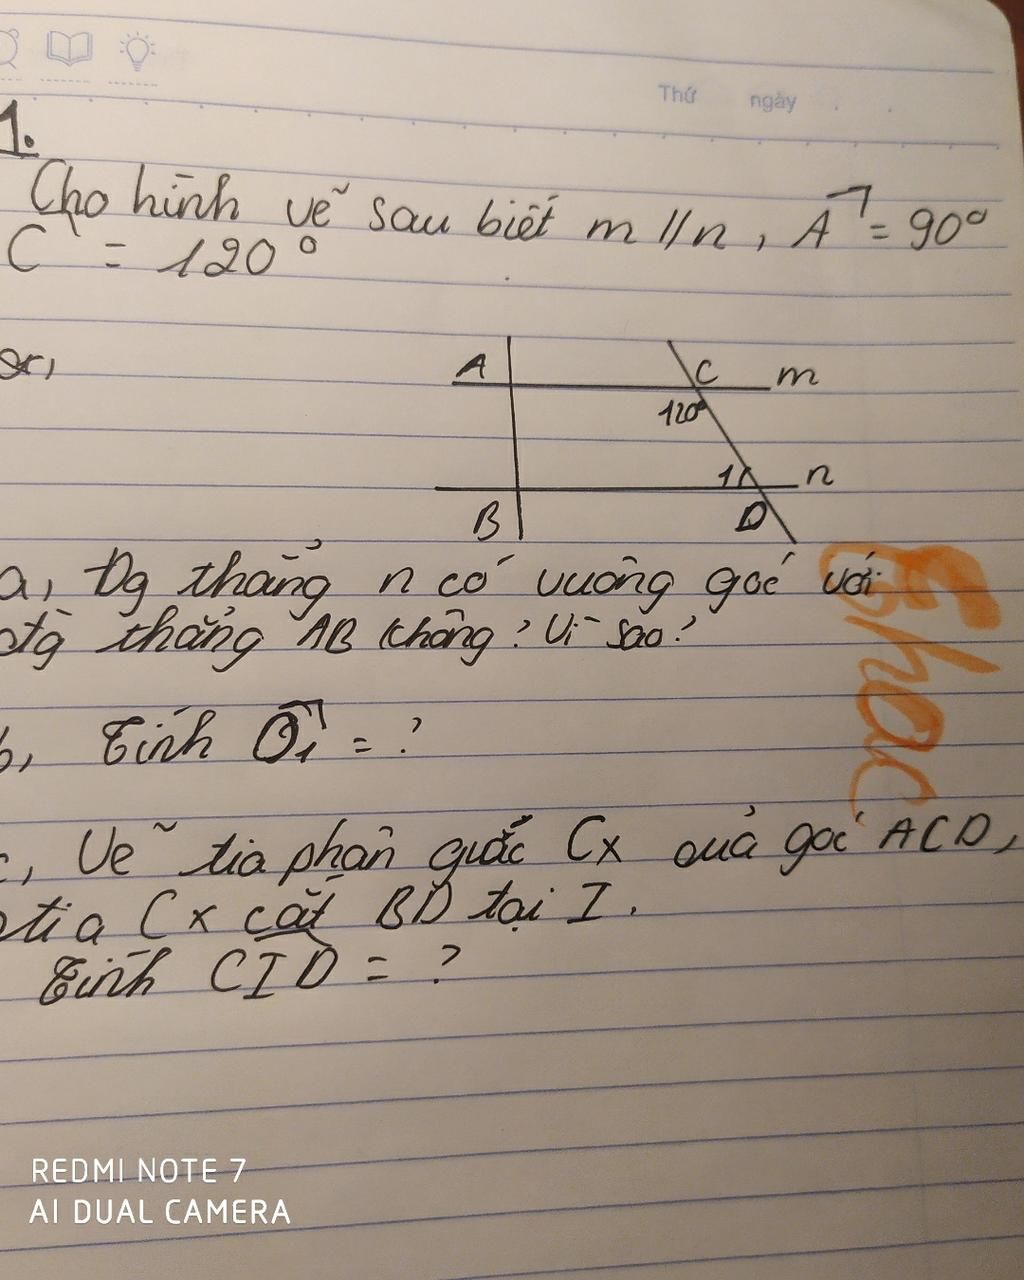 Thứ ngày
1.
Cho hình vẽ sau biết m // n, A = 90°
C = 120°
A C m
120°
1 n
B D
a, Đg thẳng n có vuông góc với
đg thẳng AB không? Vì sao?
b, Tính D₁ = ?
c, Vẽ tia phân giác Cx của góc ACD,
tia Cx cắt BD tại I.
Tính CID = ?
REDMI NOTE 7
AI DUAL CAMERA